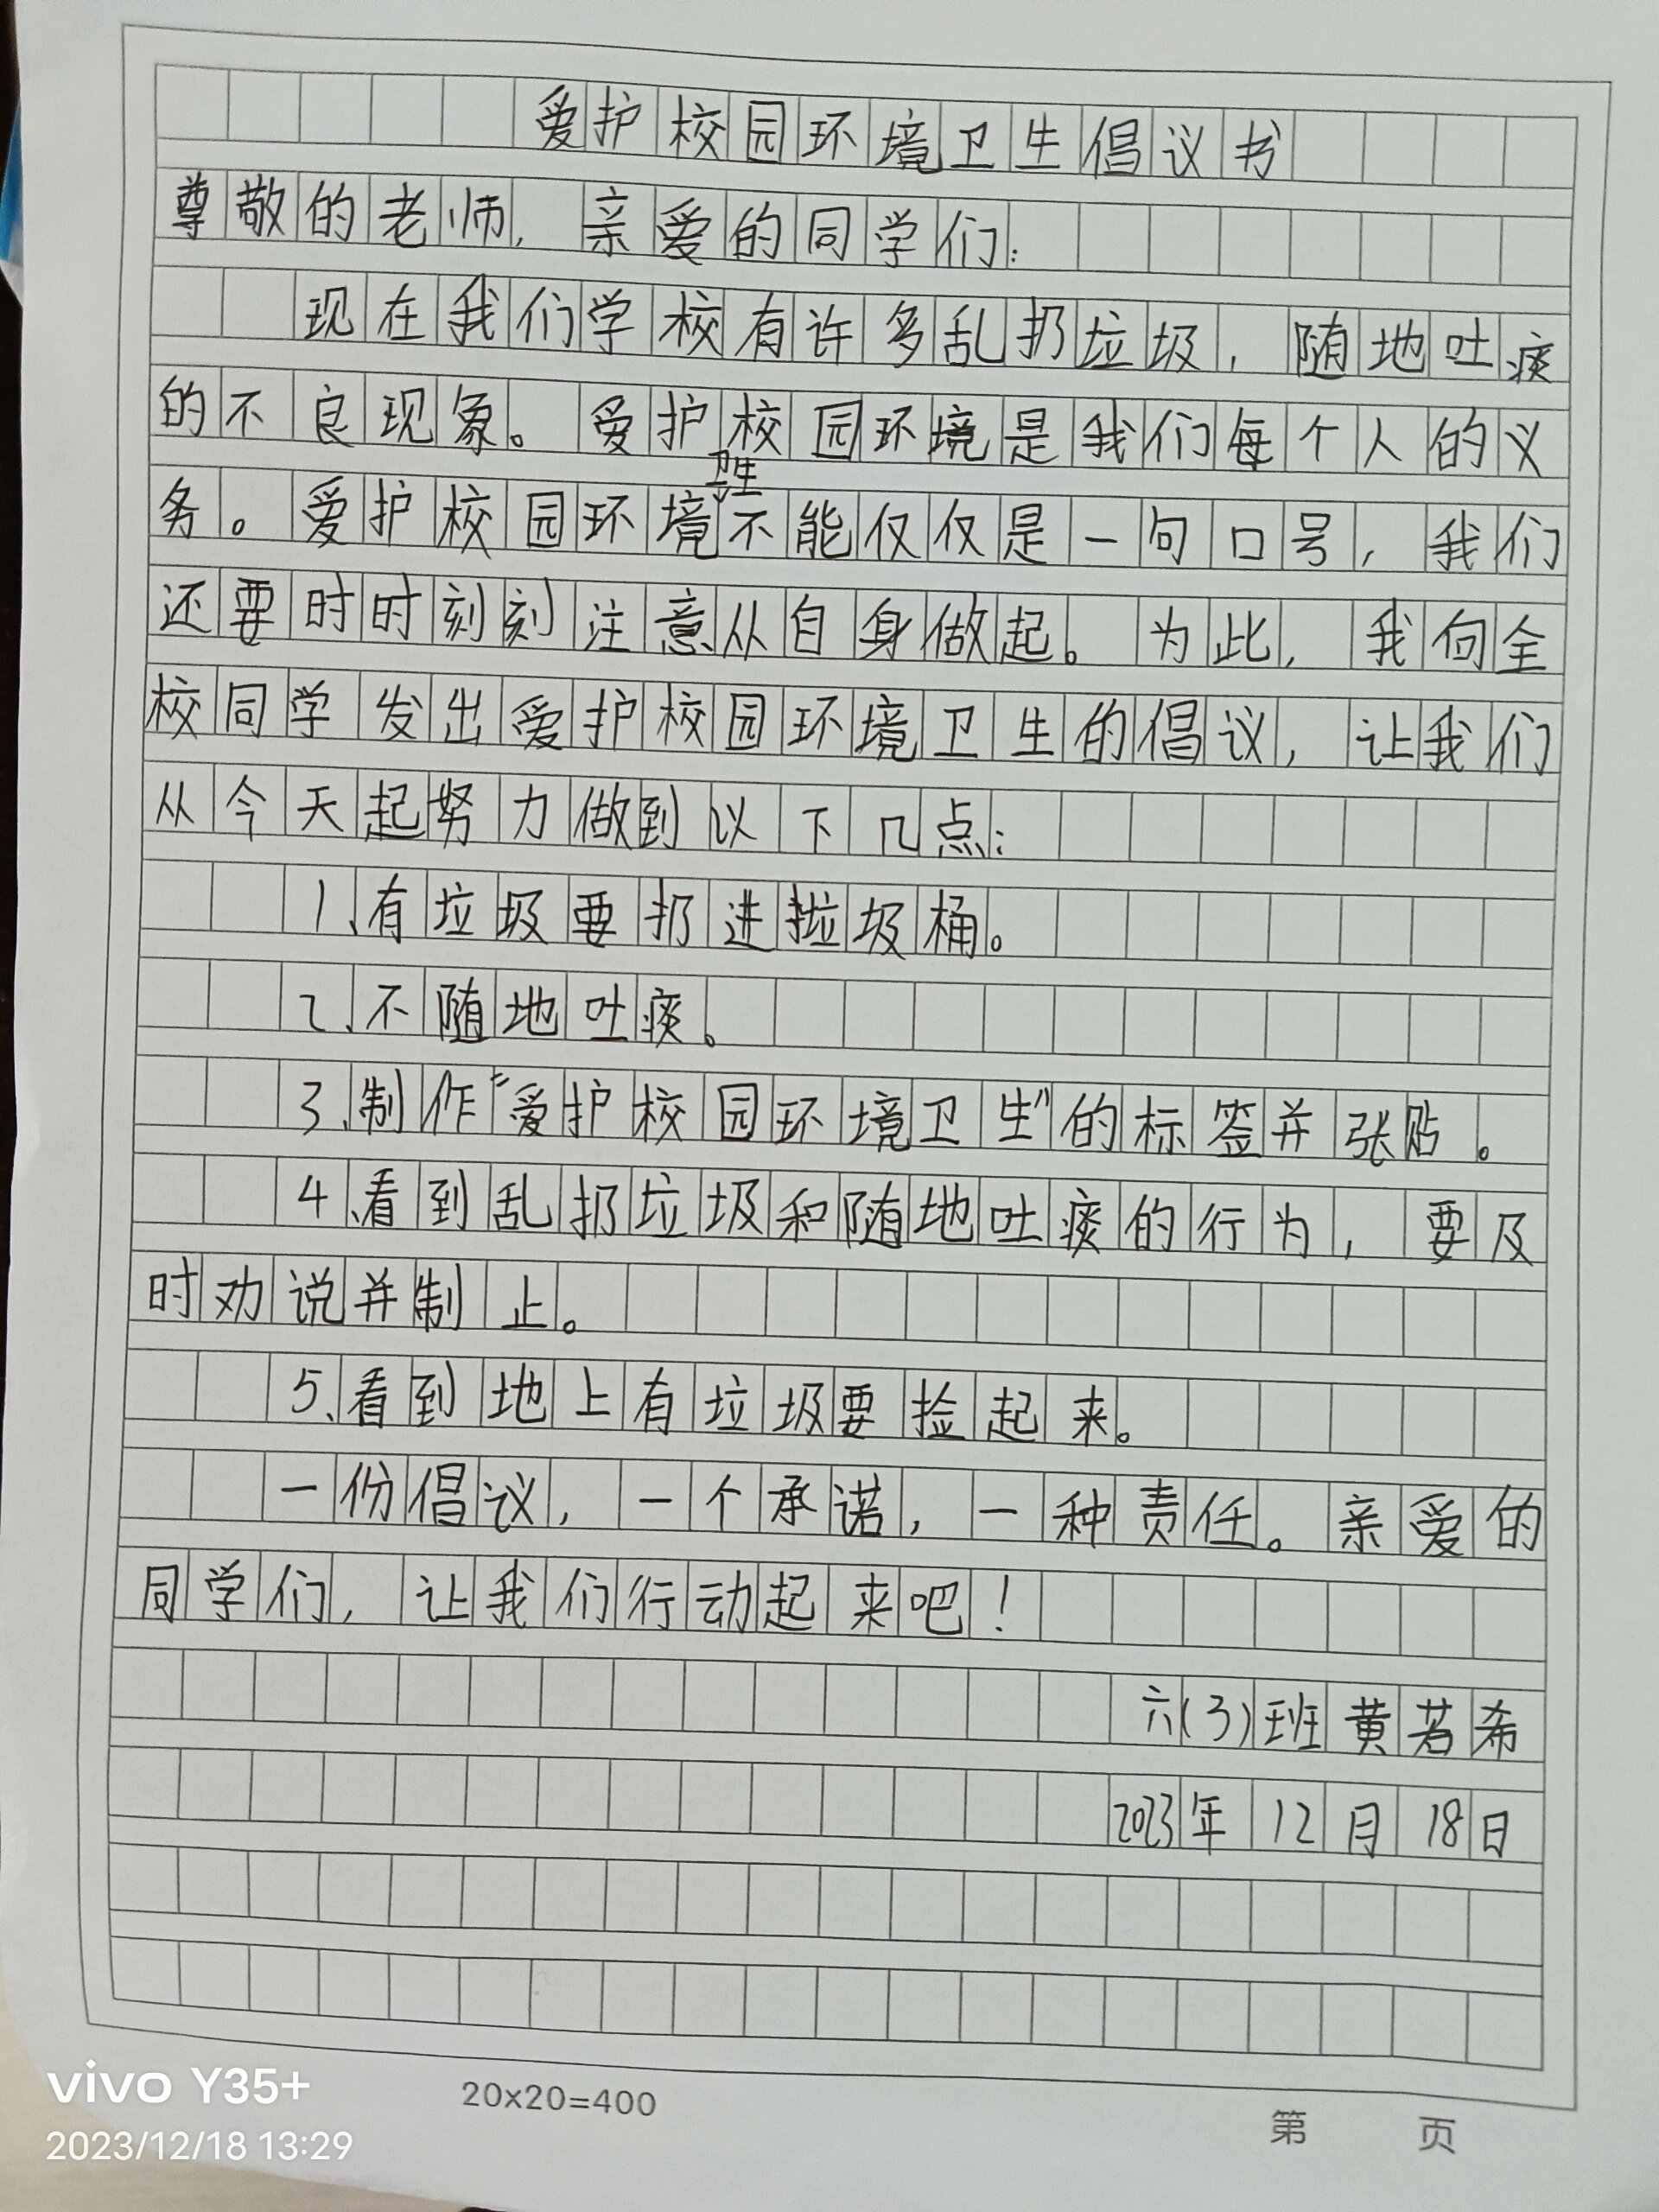 爱护校园环境卫生倡议书
尊敬的老师，亲爱的同学们：
现在我们学校有许多乱扔垃圾，随地吐痰
的不良现象。爱护校园环境是我们每个人的义
务。爱护校园环境卫生不能仅仅是一句口号，我们
还要时时刻刻注意从自身做起。为此，我向全
校同学发出爱护校园环境卫生的倡议，让我们
从今天起努力做到以下几点：
1、有垃圾要扔进垃圾桶。
2、不随地吐痰。
3、制作“爱护校园环境卫生”的标签并张贴。
4、看到乱扔垃圾和随地吐痰的行为，要及
时劝说并制止。
5、看到地上有垃圾要捡起来。
一份倡议，一个承诺，一种责任。亲爱的
同学们，让我们行动起来吧！
六(3)班黄若希
2023年12月18日
vivo Y35+
2023/12/18 13:29
20×20=400
第 页